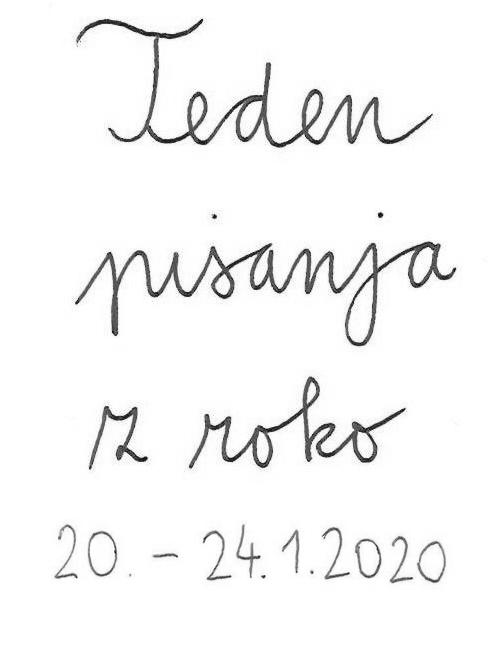 Teden
pisanja
z roko
20. - 24.1.2020